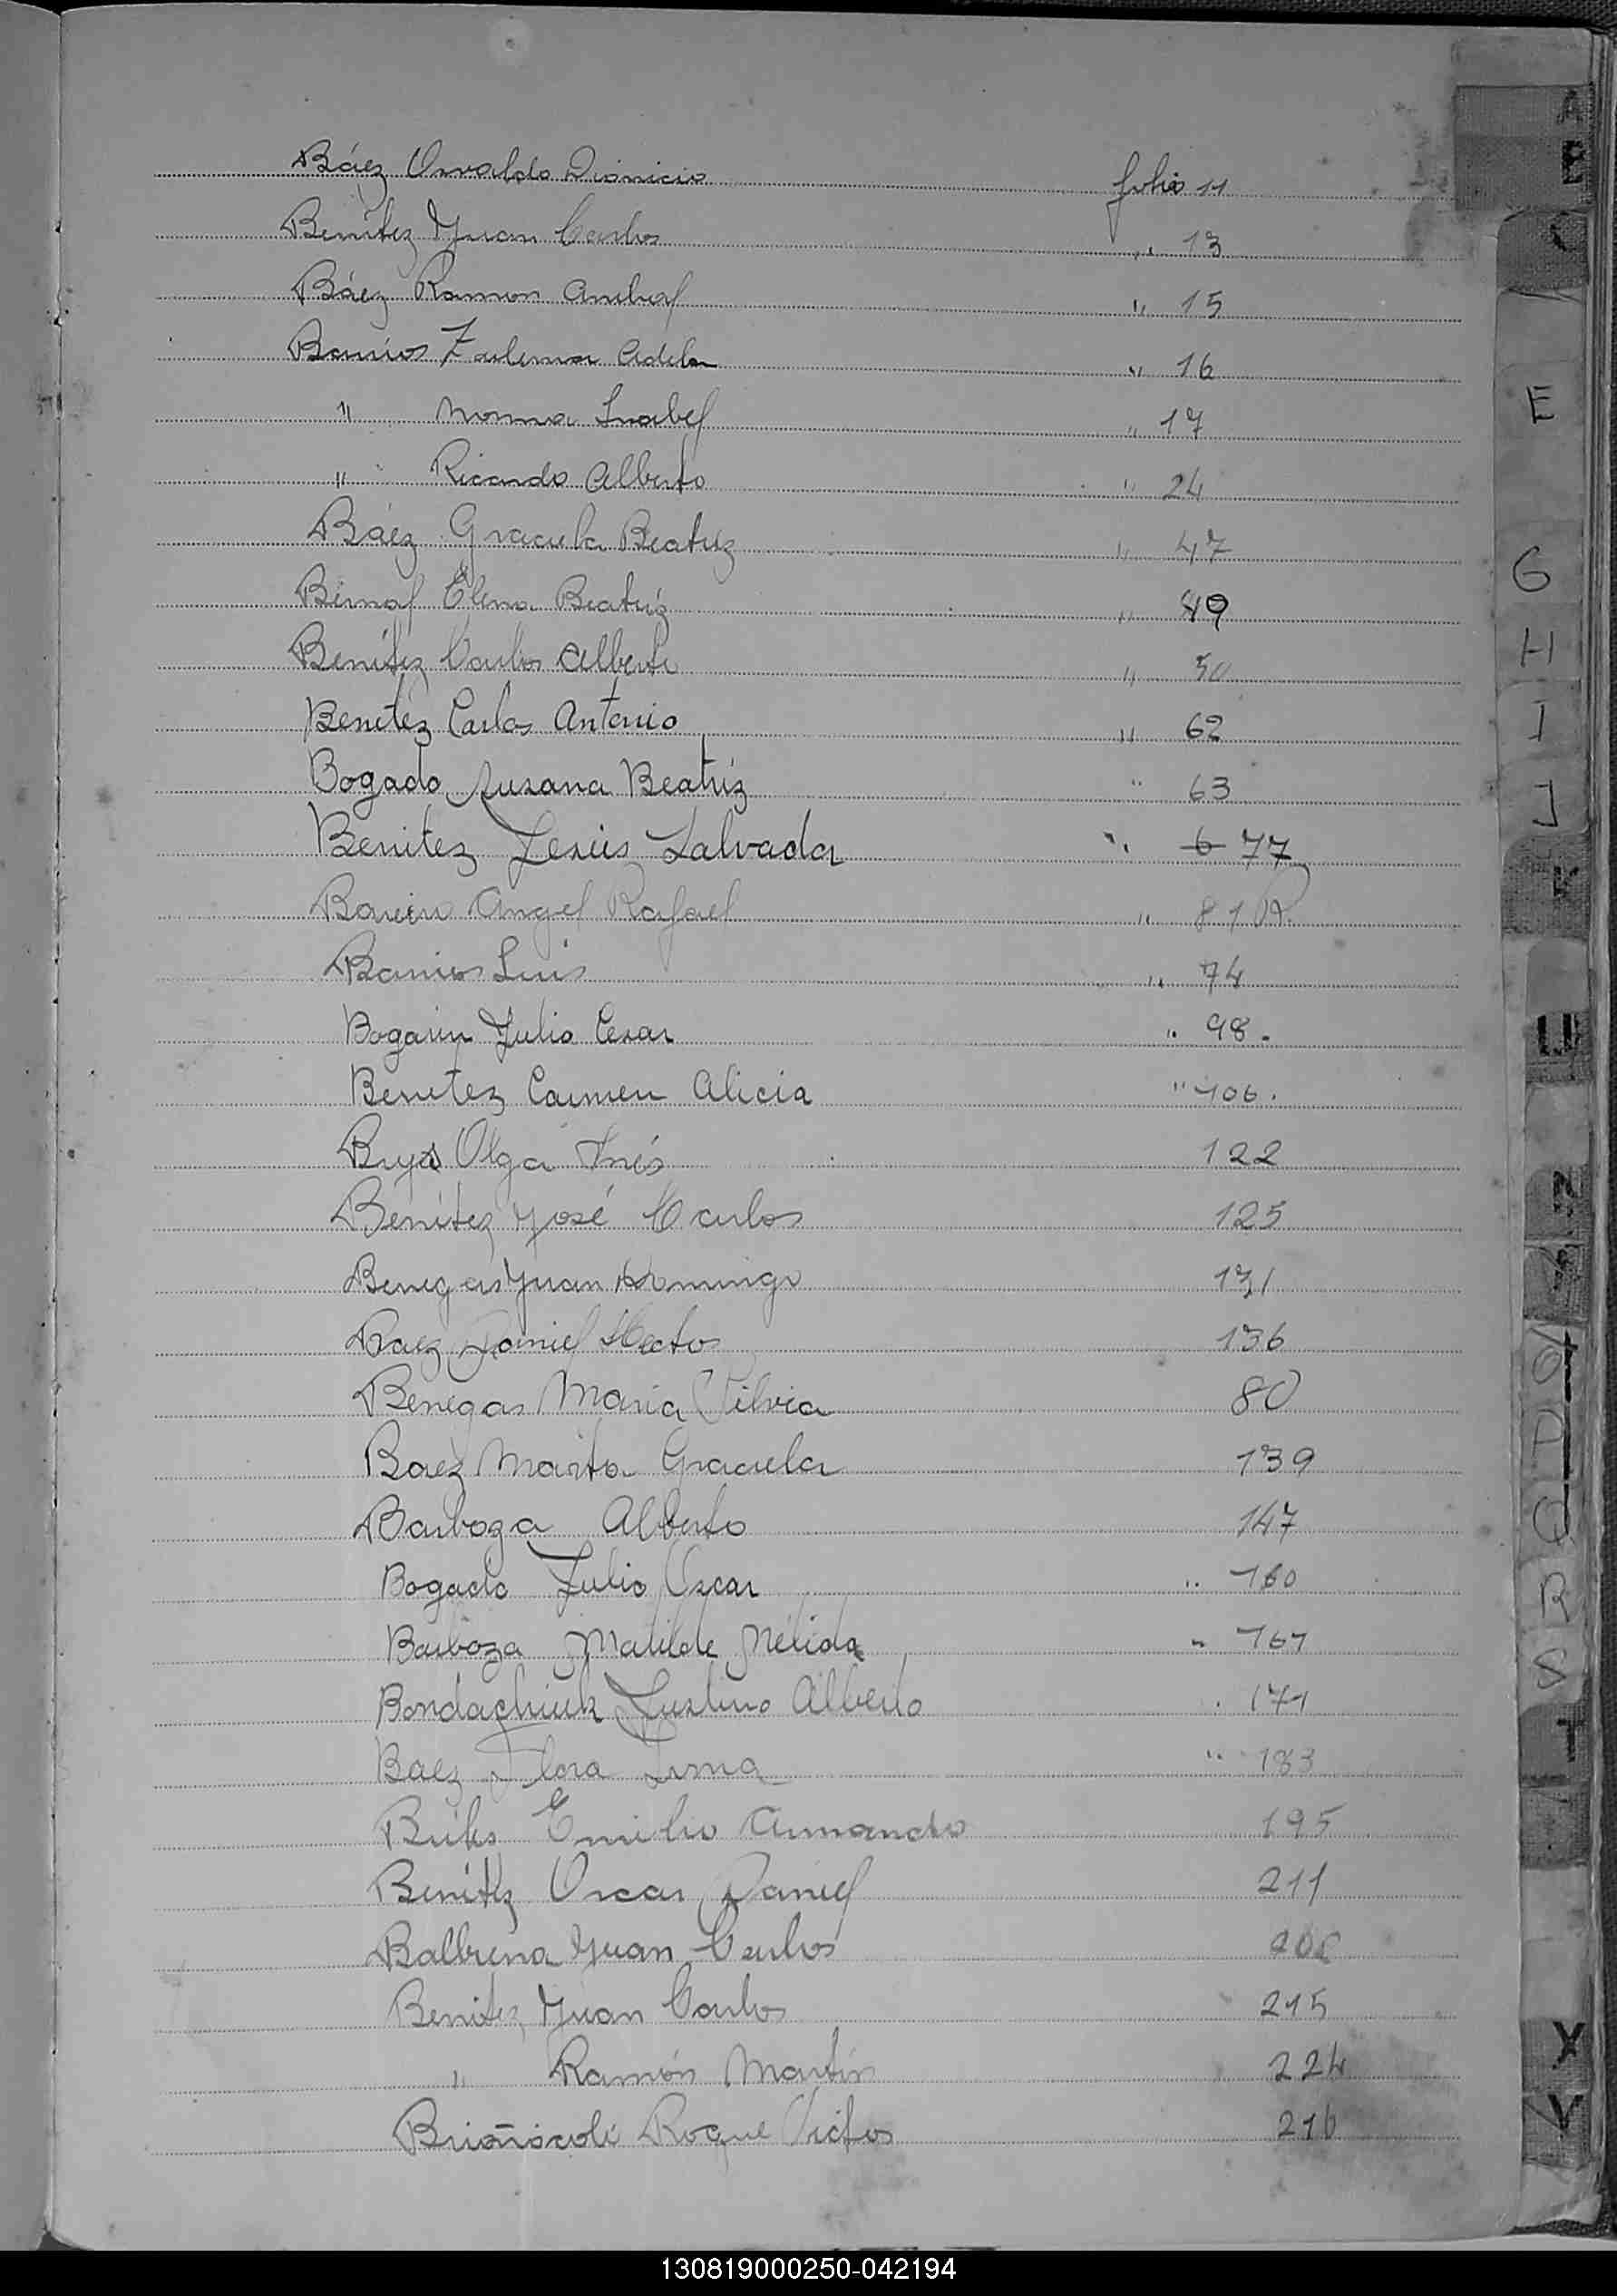 Báez Osvaldo Dionicio folio 11
Benítez Juan Carlos " 13
Báez Ramon Anibal " 15
Barrios Zulema Adela " 16
" Norma Isabel " 17
" Ricardo Alberto " 24
Báez Graciela Beatriz " 47
Bernal Elena Beatriz " 49
Benítez Carlos Alberto " 50
Benítez Carlos Antonio " 62
Bogado Susana Beatriz " 63
Benitez Jesús Salvador " 6 77
Angel Rafael " 81 R.
Barrios Luis " 74
Bogarin Julio Cesar " 98.
Benitez Carmen Alicia " 106.
Olga Inés 122
Benítez José Carlos 125
Benegas Juan Domingo 131
Baez Daniel Hector 136
Benegas María Silvia 80
Baez Marta Graciela 139
Barboza Alberto 147
Bogado Julio Oscar " 160
Barboza Matilde Nélida " 161
Bondachiuk Justino Alberto " 171
Baez Flora Irma " 183
Emilio Armando 195
Benítez Oscar Daniel 211
Balbuena Juan Carlos
Benitez Juan Carlos 215
" Ramón Martín 224
Roque Victor 216
A
B
C
E
G
H
I
J
K
N
O
P
Q
R
S
T
X
V
130819000250-042194